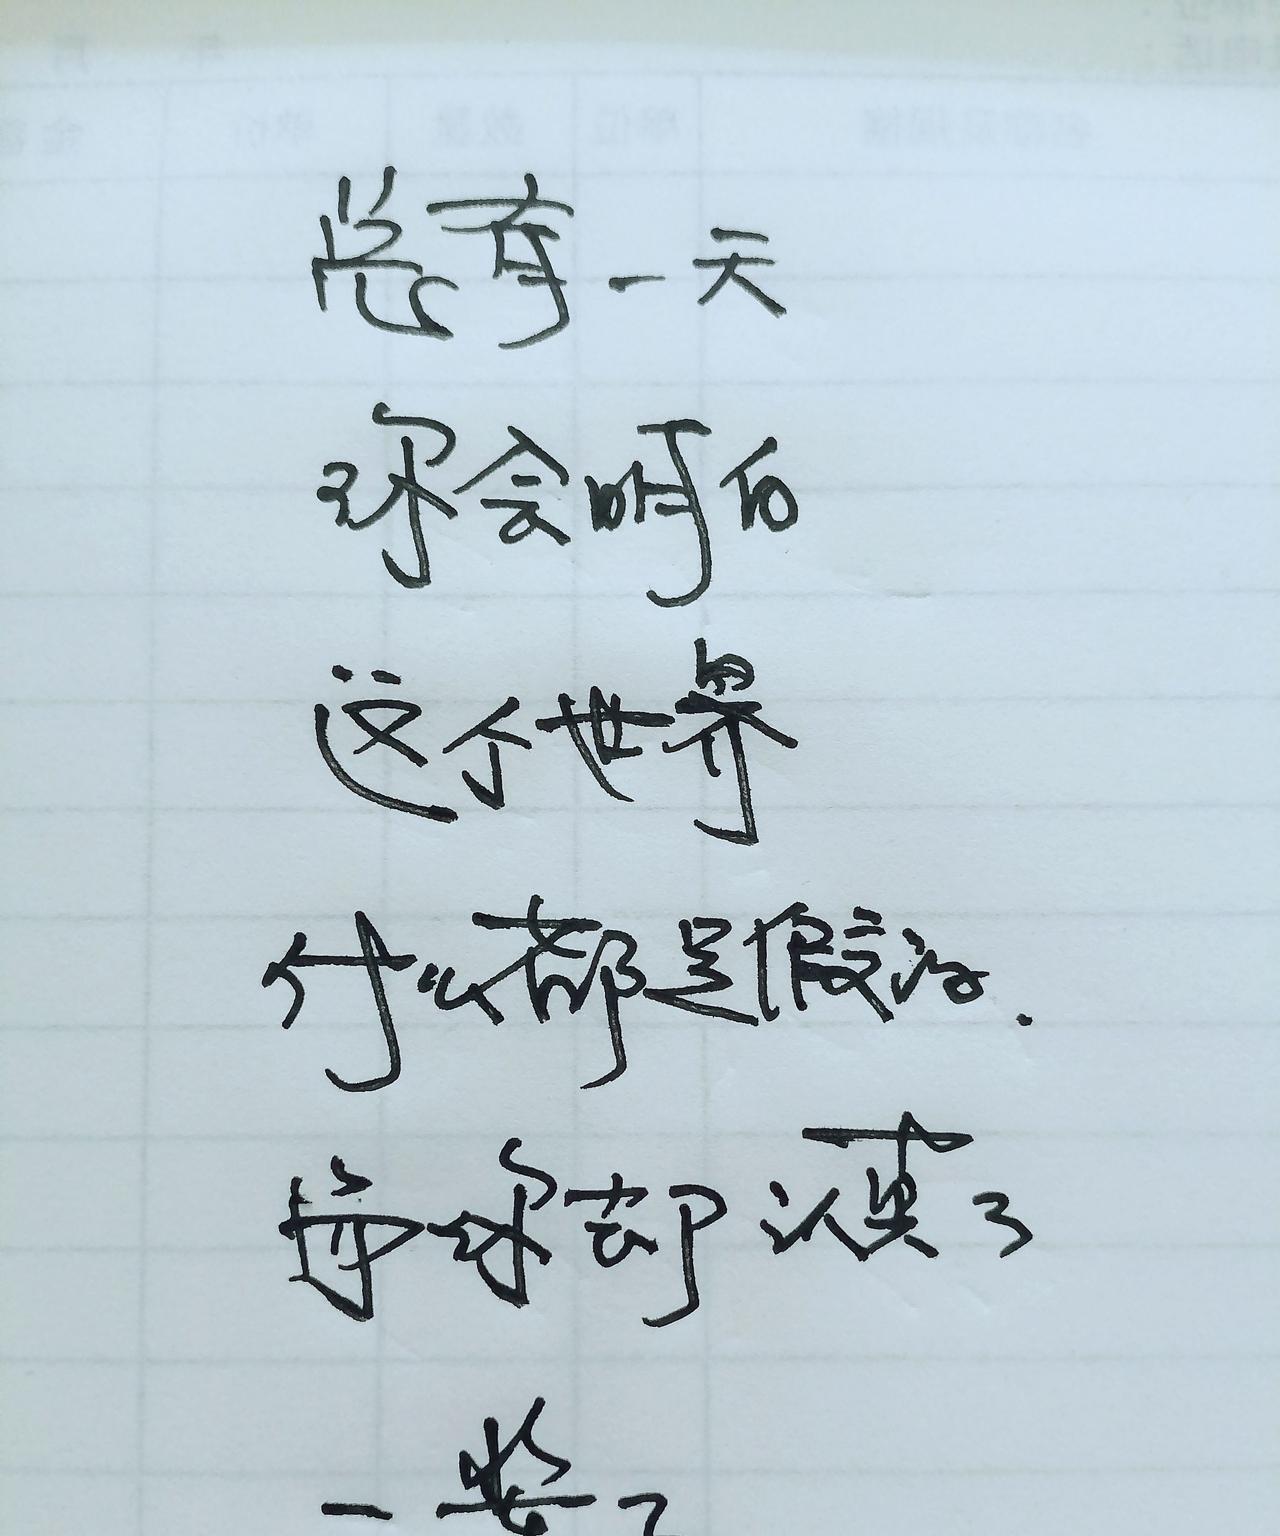 总有一天
你会明白
这个世界
什么都是假的.
你却认真了
一